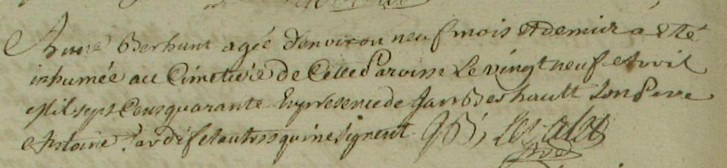 Anne Berhunt agée d'environ neuf mois et demie a été
inhumée au Cimetiere de Cette Paroisse Le vingt neuf Avril
Mil sept Cens quarante En presence de Jan Beshault son Pere
Antoine et autres qui ne signent